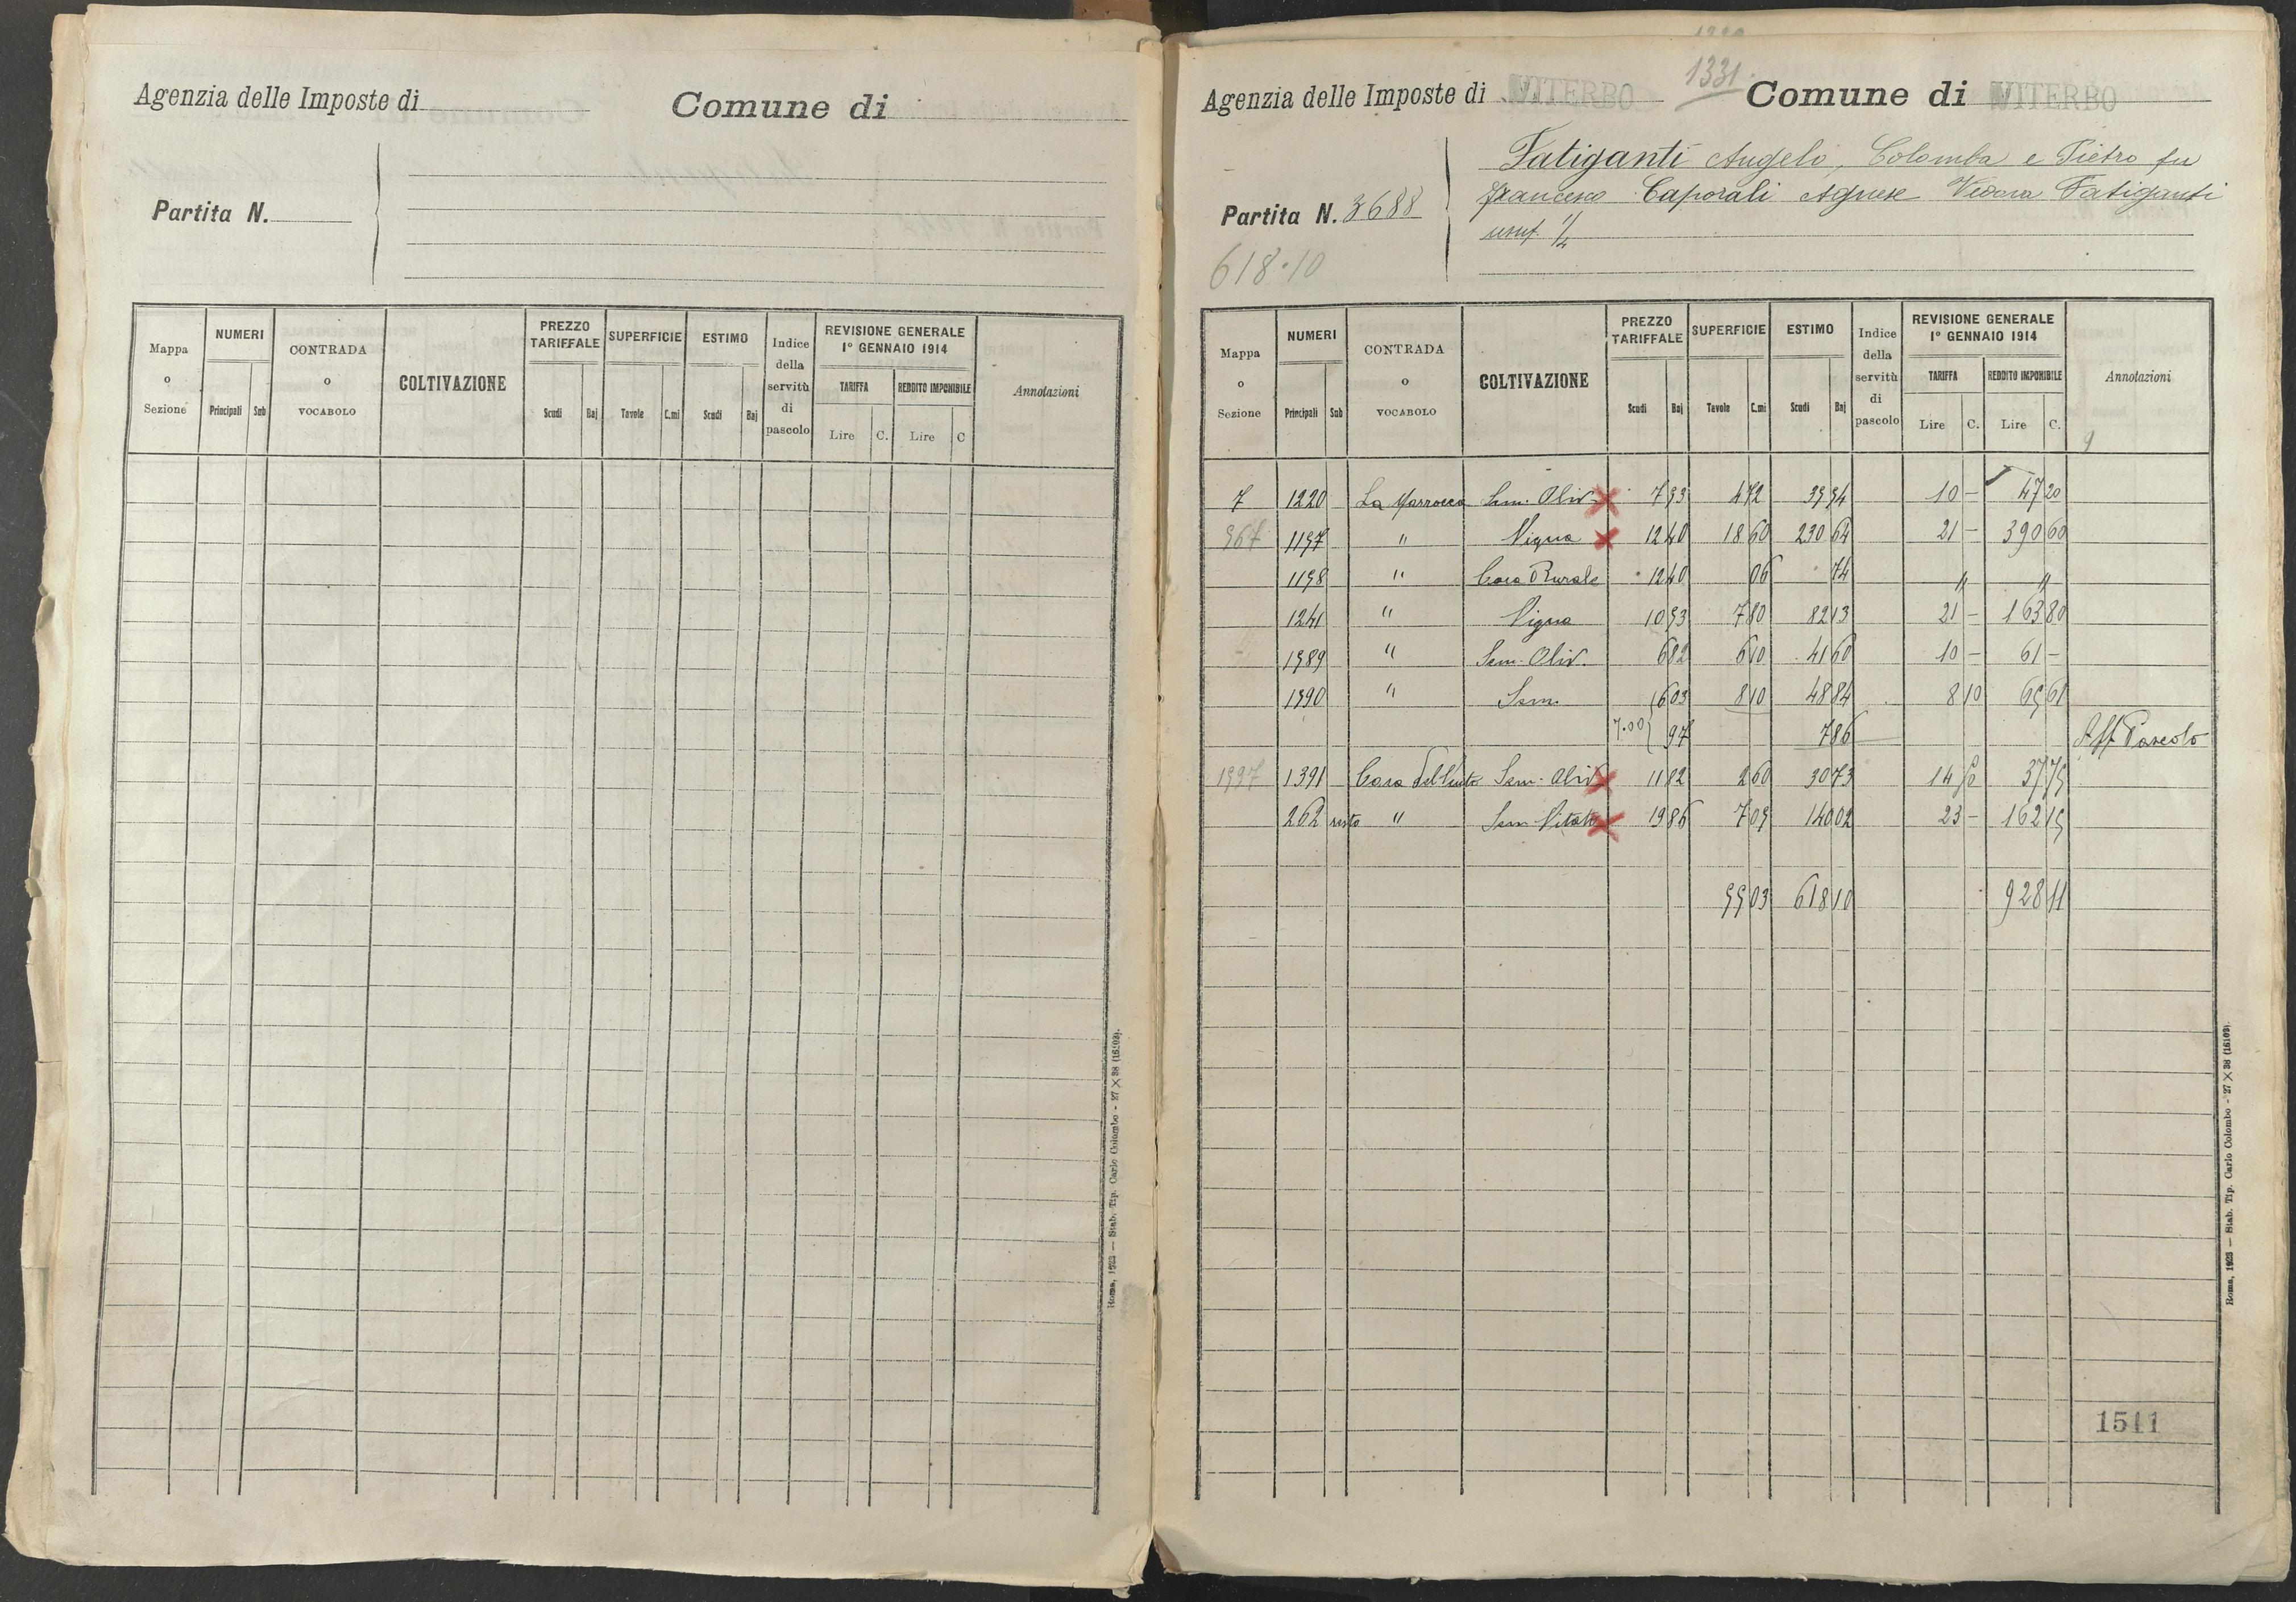 Agenzia delle Imposte di
Comune di
Partita N.
Mappa o Sezione
NUMERI
Principali Sub
CONTRADA o VOCABOLO
COLTIVAZIONE
PREZZO TARIFFALE
Scudi Baj
SUPERFICIE
Tavole C.mi
ESTIMO
Scudi Baj
Indice della servitù di pascolo
REVISIONE GENERALE
1° GENNAIO 1914
TARIFFA
Lire C.
REDDITO IMPONIBILE
Lire C
Annotazioni
Roma, 1923 — Stab. Tip. Carlo Colombo - 27 X 38 (16103).
1331
Agenzia delle Imposte di VITERBO Comune di VITERBO
Fatiganti Angelo, Colomba e Pietro fu
Francesco Caporali Agnese Vedova Fatiganti
usuf. 1/2
Partita N. 3688
618.10
Mappa o Sezione
NUMERI
Principali Sub
CONTRADA o VOCABOLO
COLTIVAZIONE
PREZZO TARIFFALE
Scudi Baj
SUPERFICIE
Tavole C.mi
ESTIMO
Scudi Baj
Indice della servitù di pascolo
REVISIONE GENERALE
1° GENNAIO 1914
TARIFFA
Lire C.
REDDITO IMPONIBILE
Lire C.
Annotazioni
7 1220 La Sem. Oliv. 7 93 4 72 10 - 47 20
1197 " Vigna 12 40 18 60 230 64 21 - 390 60
1198 " Casa Rurale 12 40 06 74 " "
1241 " Vigna 10 53 7 80 82 13 21 - 163 80
1989 " Sem. Oliv. 6 82 6 10 41 60 10 - 61 -
1990 " Sem. 6 03 8 10 48 84 8 10 65 61
7.00 97 7 86 Aff. Pascolo
1391 Casa Sem. Oliv 11 82 2 60 30 73 14 50 37 75
262 resto " Sem Vitato 19 86 7 05 140 02 23 - 162 15
55 03 618 10 928 11
1511
Roma, 1923 — Stab. Tip. Carlo Colombo - 27 X 38 (16103).